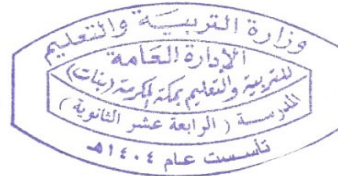 وزارة التربية والتعليم
الإدارة العامة
للتربية والتعليم بمكة المكرمة (بنات)
المدرسة ( الرابعة عشر الثانوية )
تأسست عام ١٤٠٤هـ